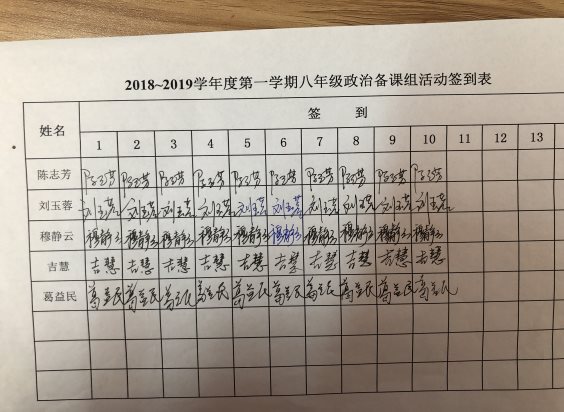 2018~2019学年度第一学期八年级政治备课组活动签到表
姓名 签 到
1 2 3 4 5 6 7 8 9 10 11 12 13
陈志芳 陈志芳 陈志芳 陈志芳 陈志芳 陈志芳 陈志芳 陈志芳 陈志芳 陈志芳 陈志芳
刘玉蓉 刘玉蓉 刘玉蓉 刘玉蓉 刘玉蓉 刘玉蓉 刘玉蓉 刘玉蓉 刘玉蓉 刘玉蓉 刘玉蓉
穆静云 穆静云 穆静云 穆静云 穆静云 穆静云 穆静云 穆静云 穆静云 穆静云 穆静云
吉慧 吉慧 吉慧 吉慧 吉慧 吉慧 吉慧 吉慧 吉慧 吉慧 吉慧
葛益民 葛益民 葛益民 葛益民 葛益民 葛益民 葛益民 葛益民 葛益民 葛益民 葛益民